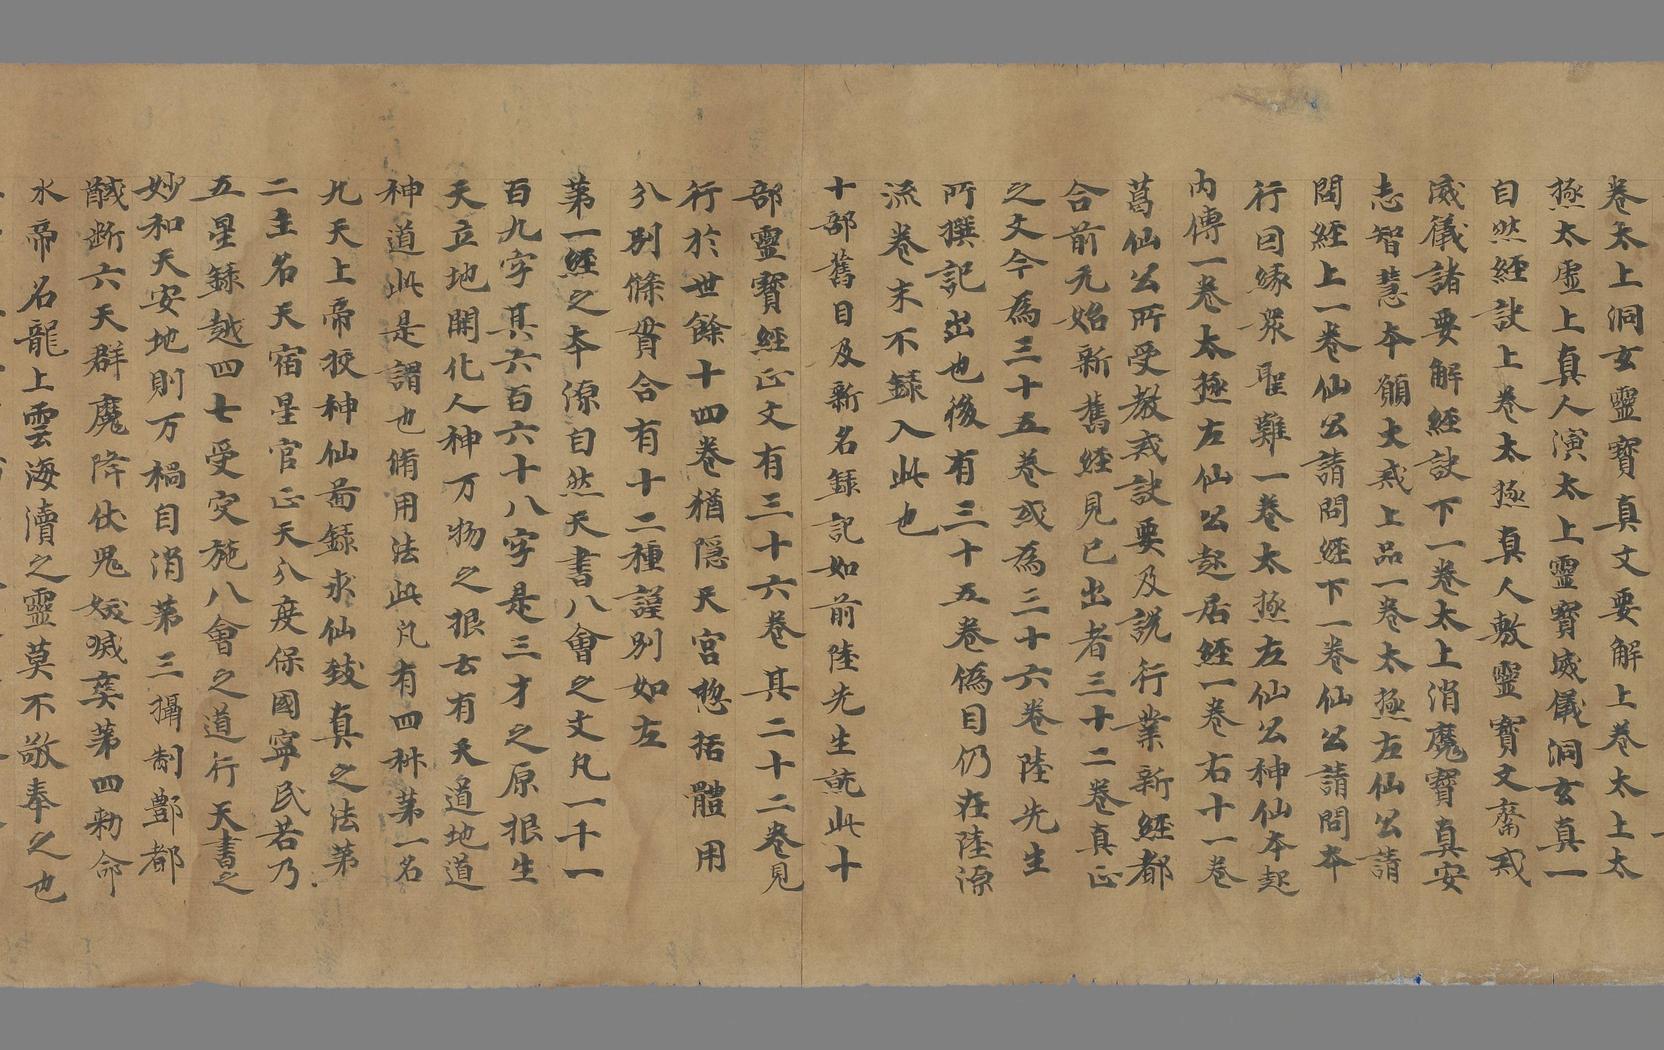 卷太上洞玄靈寶真文要解上卷太上太
極太虛上真人演太上靈寶威儀洞玄真一
自然經訣上卷太極真人敷靈寶文齋戒
威儀諸要解經訣下一卷太上消魔寶真安
志智慧本願大戒上品一卷太極左仙公請
問經上一卷仙公請問經下一卷仙公請問本
行因緣衆聖難一卷太極左仙公神仙本起
内傳一卷太極左仙公起居經一卷右十一卷
葛仙公所受教戒訣要及説行業新經都
合前元始新舊經見已出者三十二卷真正
之文今為三十五卷或為三十六卷陸先生
所撰記出也後有三十五卷偽目仍在陸源
流卷末不録入此也
十部舊目及新名録記如前陸先生就此十
部靈寶經正文有三十六卷其二十二卷見
行於世餘十四卷猶隱天宮惣括體用
分別條貫合有十二種謹別如左
第一經之本源自然天書八會之文凡一千一
百九字其六百六十八字是三才之原根生
天立地開化人神万物之根云有天道地道
神道此是謂也脩用法此凡有四科第一名
九天上帝挍神仙啚録求仙致真之法第
二主名天宿星官正天分度保國寧民若乃
五星録越四七受定施八會之道行天書之
妙和天安地則万禍自消第三攝制酆都
馘断六天群魔降伏鬼妖滅奕第四勑命
水帝名龍上雲海瀆之靈莫不敬奉之也